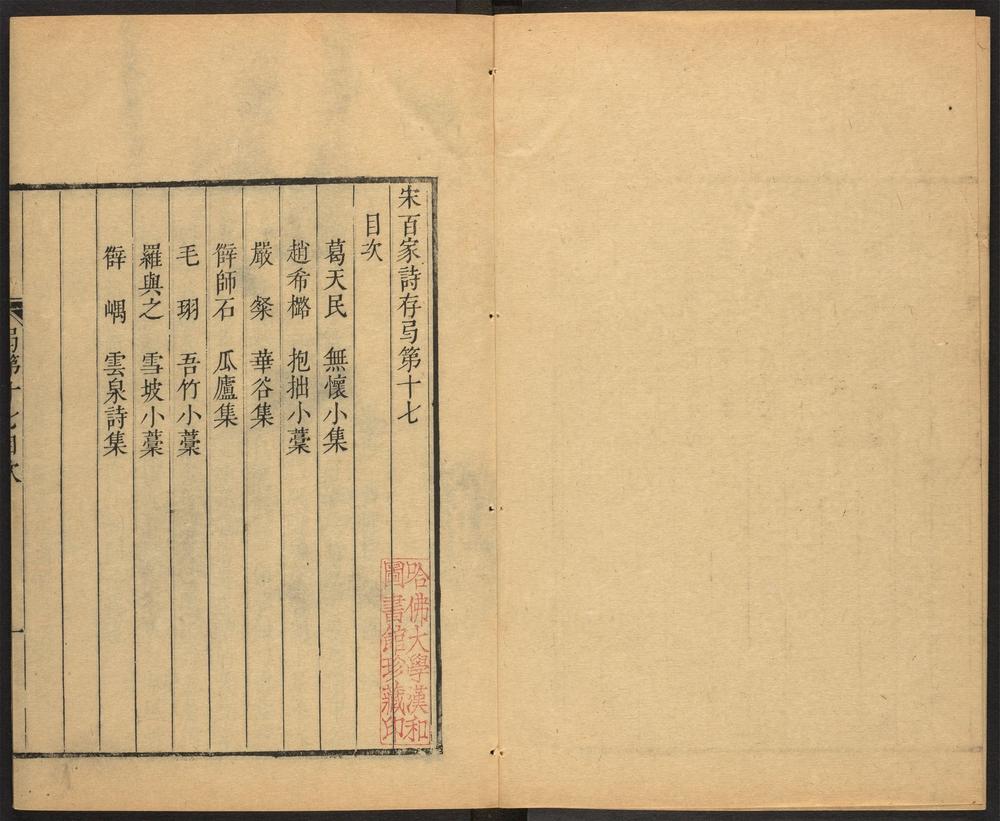 宋百家詩存弓第十七
目次
葛天民 無懷小集
趙希㯝 抱拙小藁
嚴粲 華谷集
薛師石 瓜廬集
毛珝 吾竹小藁
羅與之 雪坡小藁
薛嵎 雲泉詩集
弓第十七目次
一
哈佛大學漢和
圖書館珍藏印